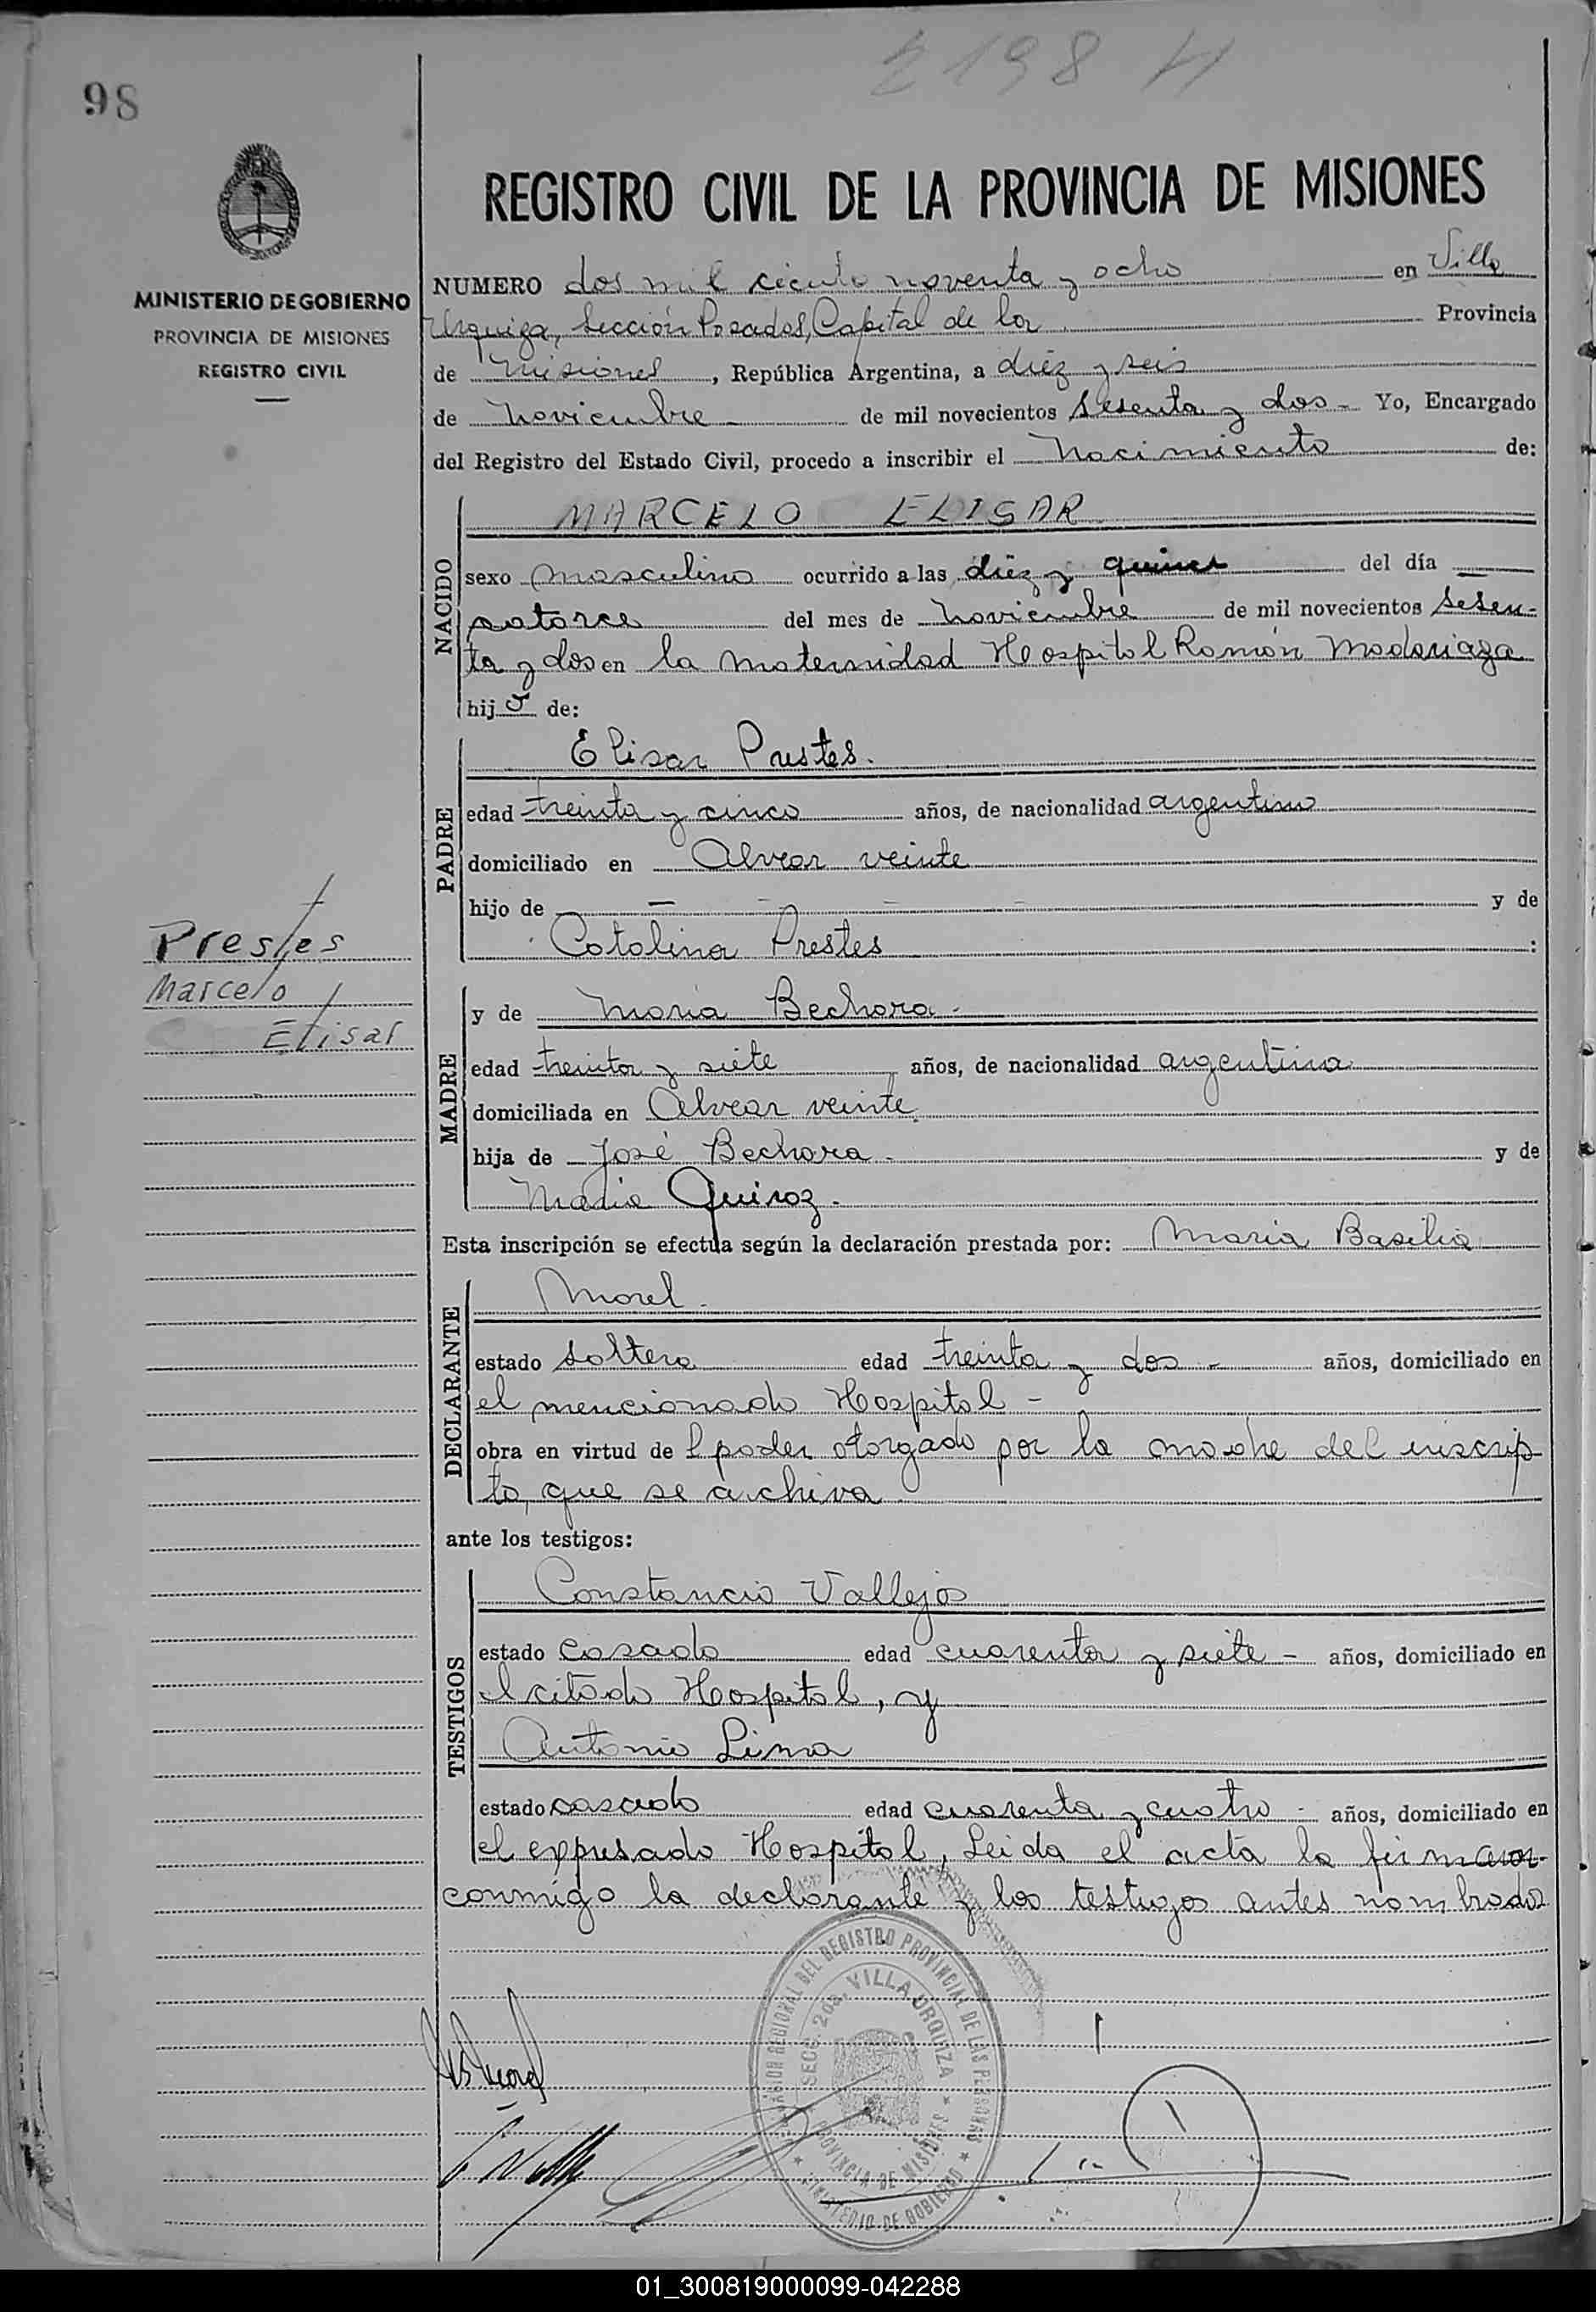 2198 H
98
REGISTRO CIVIL DE LA PROVINCIA DE MISIONES
MINISTERIO DE GOBIERNO
PROVINCIA DE MISIONES
REGISTRO CIVIL
NUMERO dos mil ciento noventa y ocho en Villa
Urquiza, Sección Posadas, Capital de la Provincia
de Misiones, República Argentina, a diez y seis
de noviembre de mil novecientos sesenta y dos - Yo, Encargado
del Registro del Estado Civil, procedo a inscribir el nacimiento de:
NACIDO
MARCELO ELISAR
sexo masculino ocurrido a las diez y quince del día
catorce del mes de noviembre de mil novecientos sesen-
ta y dos en la maternidad Hospital Ramón Madariaga
hijo de:
PADRE
Elisar Prestes.
edad treinta y cinco años, de nacionalidad argentino
domiciliado en Alvear veinte
hijo de - y de
Catalina Prestes :
Prestes
Marcelo
Elisar
MADRE
y de Maria Bechara -
edad treinta y siete años, de nacionalidad argentina
domiciliada en Alvear veinte
hija de José Bechara - y de
Maria Quiroz -
Esta inscripción se efectúa según la declaración prestada por: Maria Basilia
DECLARANTE
Morel.
estado soltera edad treinta y dos - años, domiciliado en
el mencionado Hospital -
obra en virtud del poder otorgado por la madre del inscrip-
to, que se archiva
ante los testigos:
TESTIGOS
Constancio Vallejos
estado casado edad cuarenta y siete - años, domiciliado en
el citado Hospital, y
Antonio Lima
estado casado edad cuarenta y cuatro - años, domiciliado en
el expresado Hospital, Leida el acta la firmaron
conmigo la declarante y los testigos antes nombrados
REGIONAL DEL REGISTRO PROVINCIAL DE LAS PERSONAS
SECC. 203. VILLA URQUIZA
PROVINCIA DE MISIONES
MINISTERIO DE GOBIERNO
01_300819000099-042288